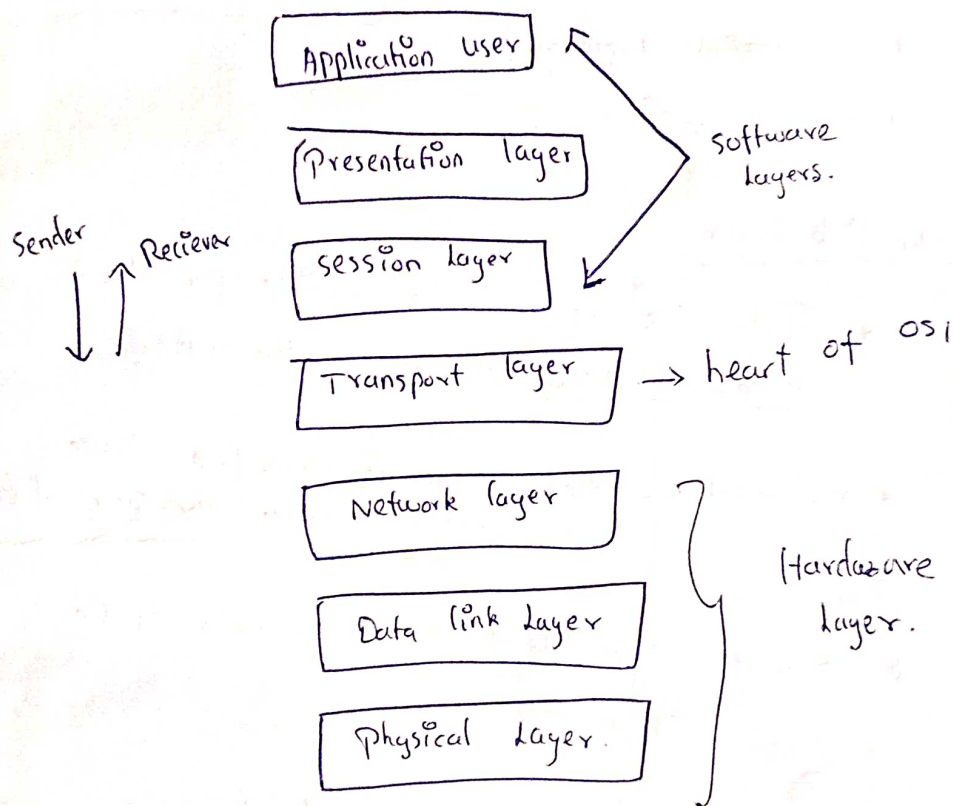 Application user
Presentation layer
software
Layers.
Sender
Reciever
session Layer
Transport layer
→ heart of OSI
Network layer
Hardware
Layer.
Data link Layer
Physical Layer.